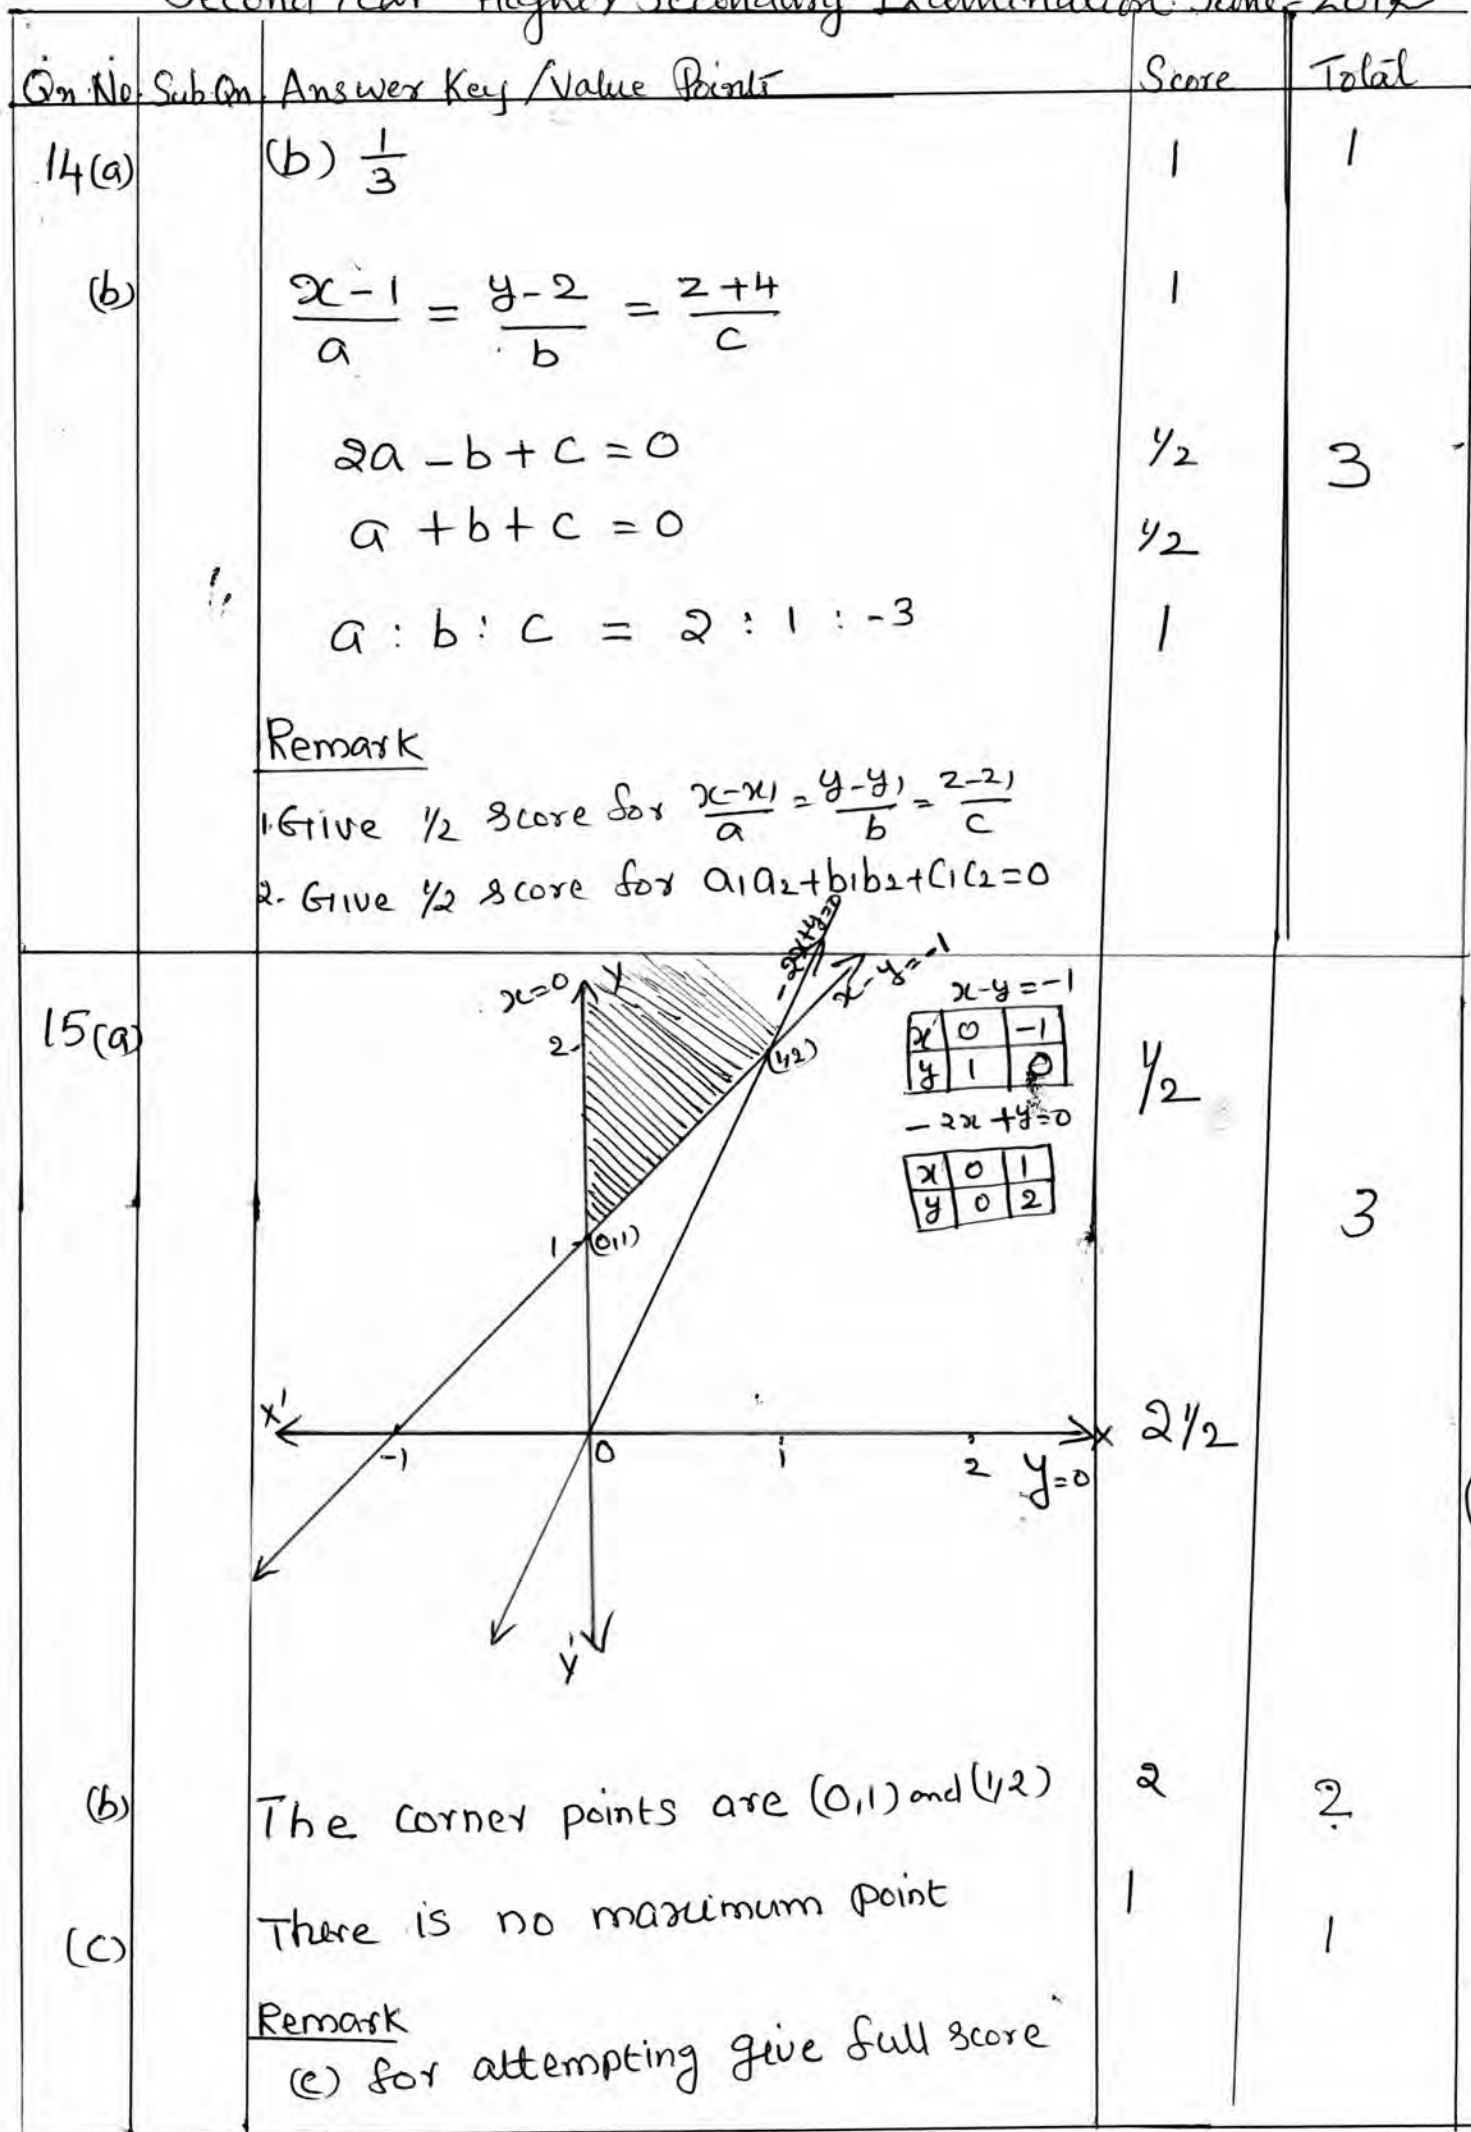 Second Year Higher Secondary Examination June-2012
Qn.No. Sub.Qn. Answer Key/Value Points Score Total
14(a) (b) 1/3 1 1
(b) x-1/a = y-2/b = z+4/c 1
2a - b + c = 0 1/2 3
a + b + c = 0 1/2
a : b : c = 2 : 1 : -3 1
Remark
1. Give 1/2 score for x-x1/a = y-y1/b = z-z1/c
2. Give 1/2 score for a1a2+b1b2+c1c2=0
-2x+y=0
x-y=-1
x=0 Y
x-y=-1
15(a) 2 (1,2) x 0 -1
y 1 0 1/2
-2x+y=0
x 0 1
y 0 2 3
1 (0,1)
X' -1 0 1 2 y=0 X 2 1/2
Y'
(b) The corner points are (0,1) and (1,2) 2 2
(c) There is no maximum point 1 1
Remark
(c) for attempting give full score